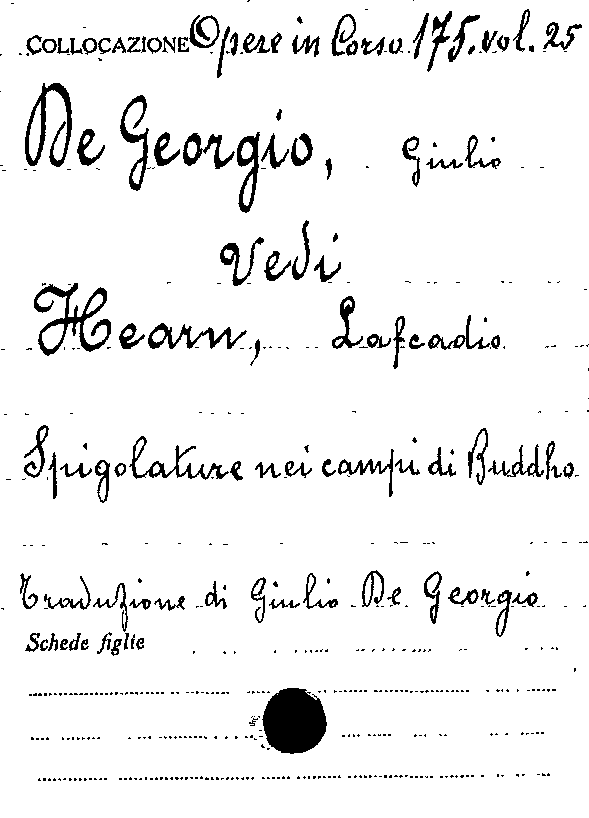 COLLOCAZIONE Opere in Corso 175. vol. 25
De Georgio, Giulio
Vedi
Hearn, Lafcadio
Spigolature nei campi di Buddho
Traduzione di Giulio De Georgio
Schede figlie